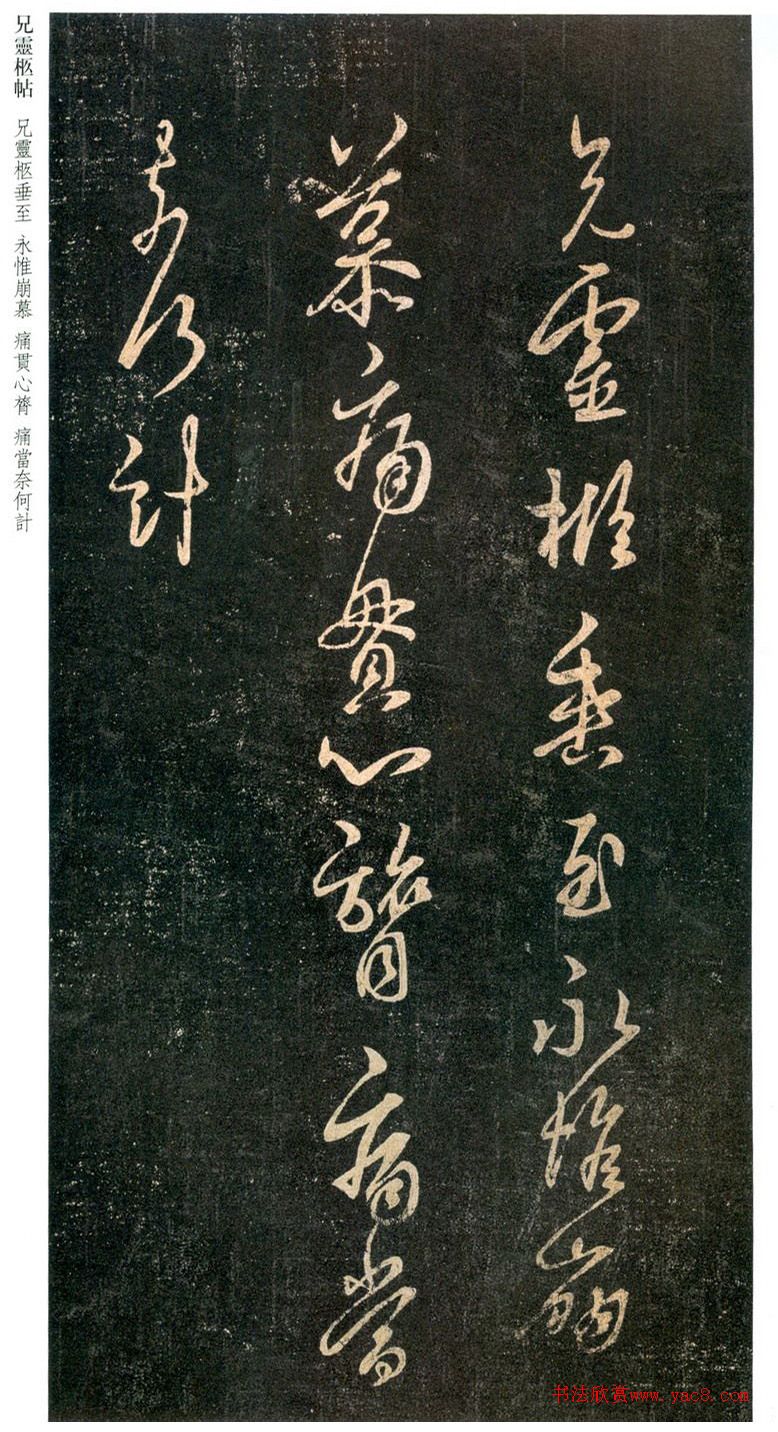 兄靈柩垂至永惟崩
慕痛貫心膂痛當
奈何計
兄靈柩帖 兄靈柩垂至 永惟崩慕 痛貫心膂 痛當奈何計
书法欣赏www.yac8.com